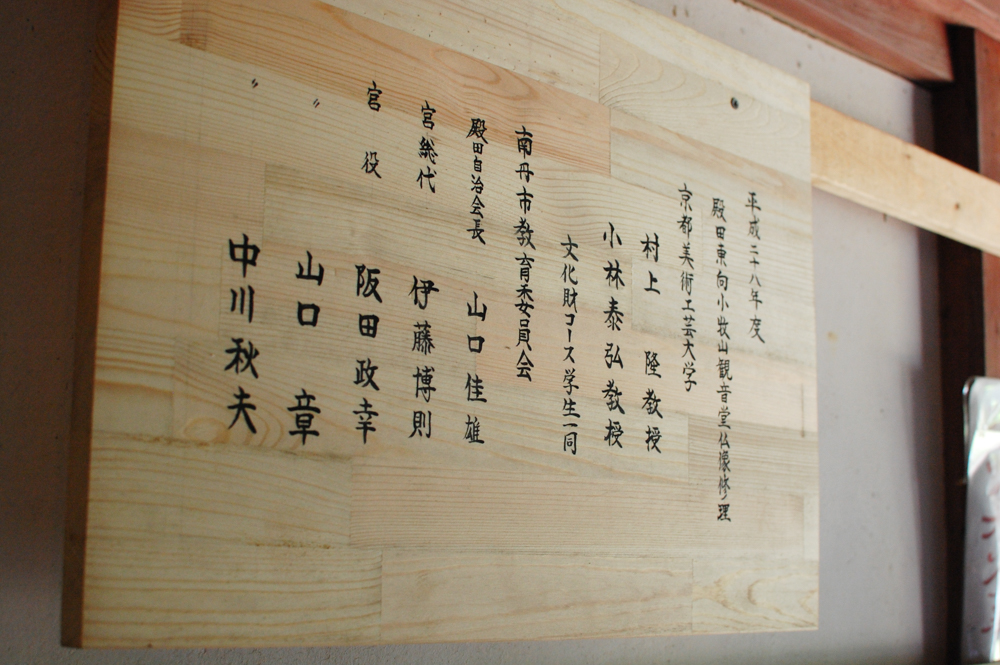 平成二十八年度
殿田東向小牧山観音堂仏像修理
京都美術工芸大学
村上 隆教授
小林泰弘教授
文化財コース学生一同
南丹市教育委員会
殿田自治会長 山口佳雄
宮総代 伊藤博則
宮役 阪田政幸
〃 山口 章
〃 中川秋夫